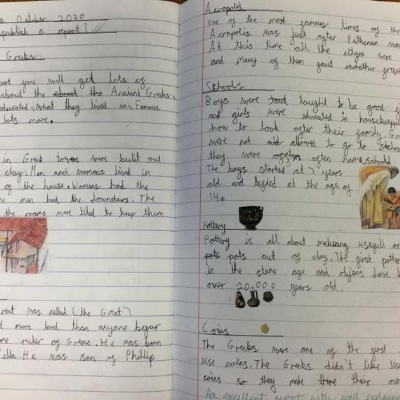 October 2020
publish a report?
Greeks
you will get lots of
about the Ancient Greks.
educated, what they lived in, Famous
lots more.
in Greek towns were built out
clay. Men and womans lived in
of the house. Womans had the
men had the downstairs. The
the rooms were tiled to keep them
was called (the Great)
more land than anyone before
ruler of Greece. He was born
Pella. He was son of Phillip
Acropolis
One of the most famous times of the
Acropolis was just after
At this time all the citys were
and many of then fount
Skhools
Boys were taught to be good
and girls were educated in
how to look after their family.
were not allowed to go to
they were often home school
The boys started at 7 years
old and lasted at the age of
14.
Pottery
Pottery is all about makeing usefull
pots out of clay. The first
in the stone age and have
over 20,000 years old.
Coins
The Greeks were one of the first
use coins. The Greeks didn't like
coins so they made there own
An excellent report with well